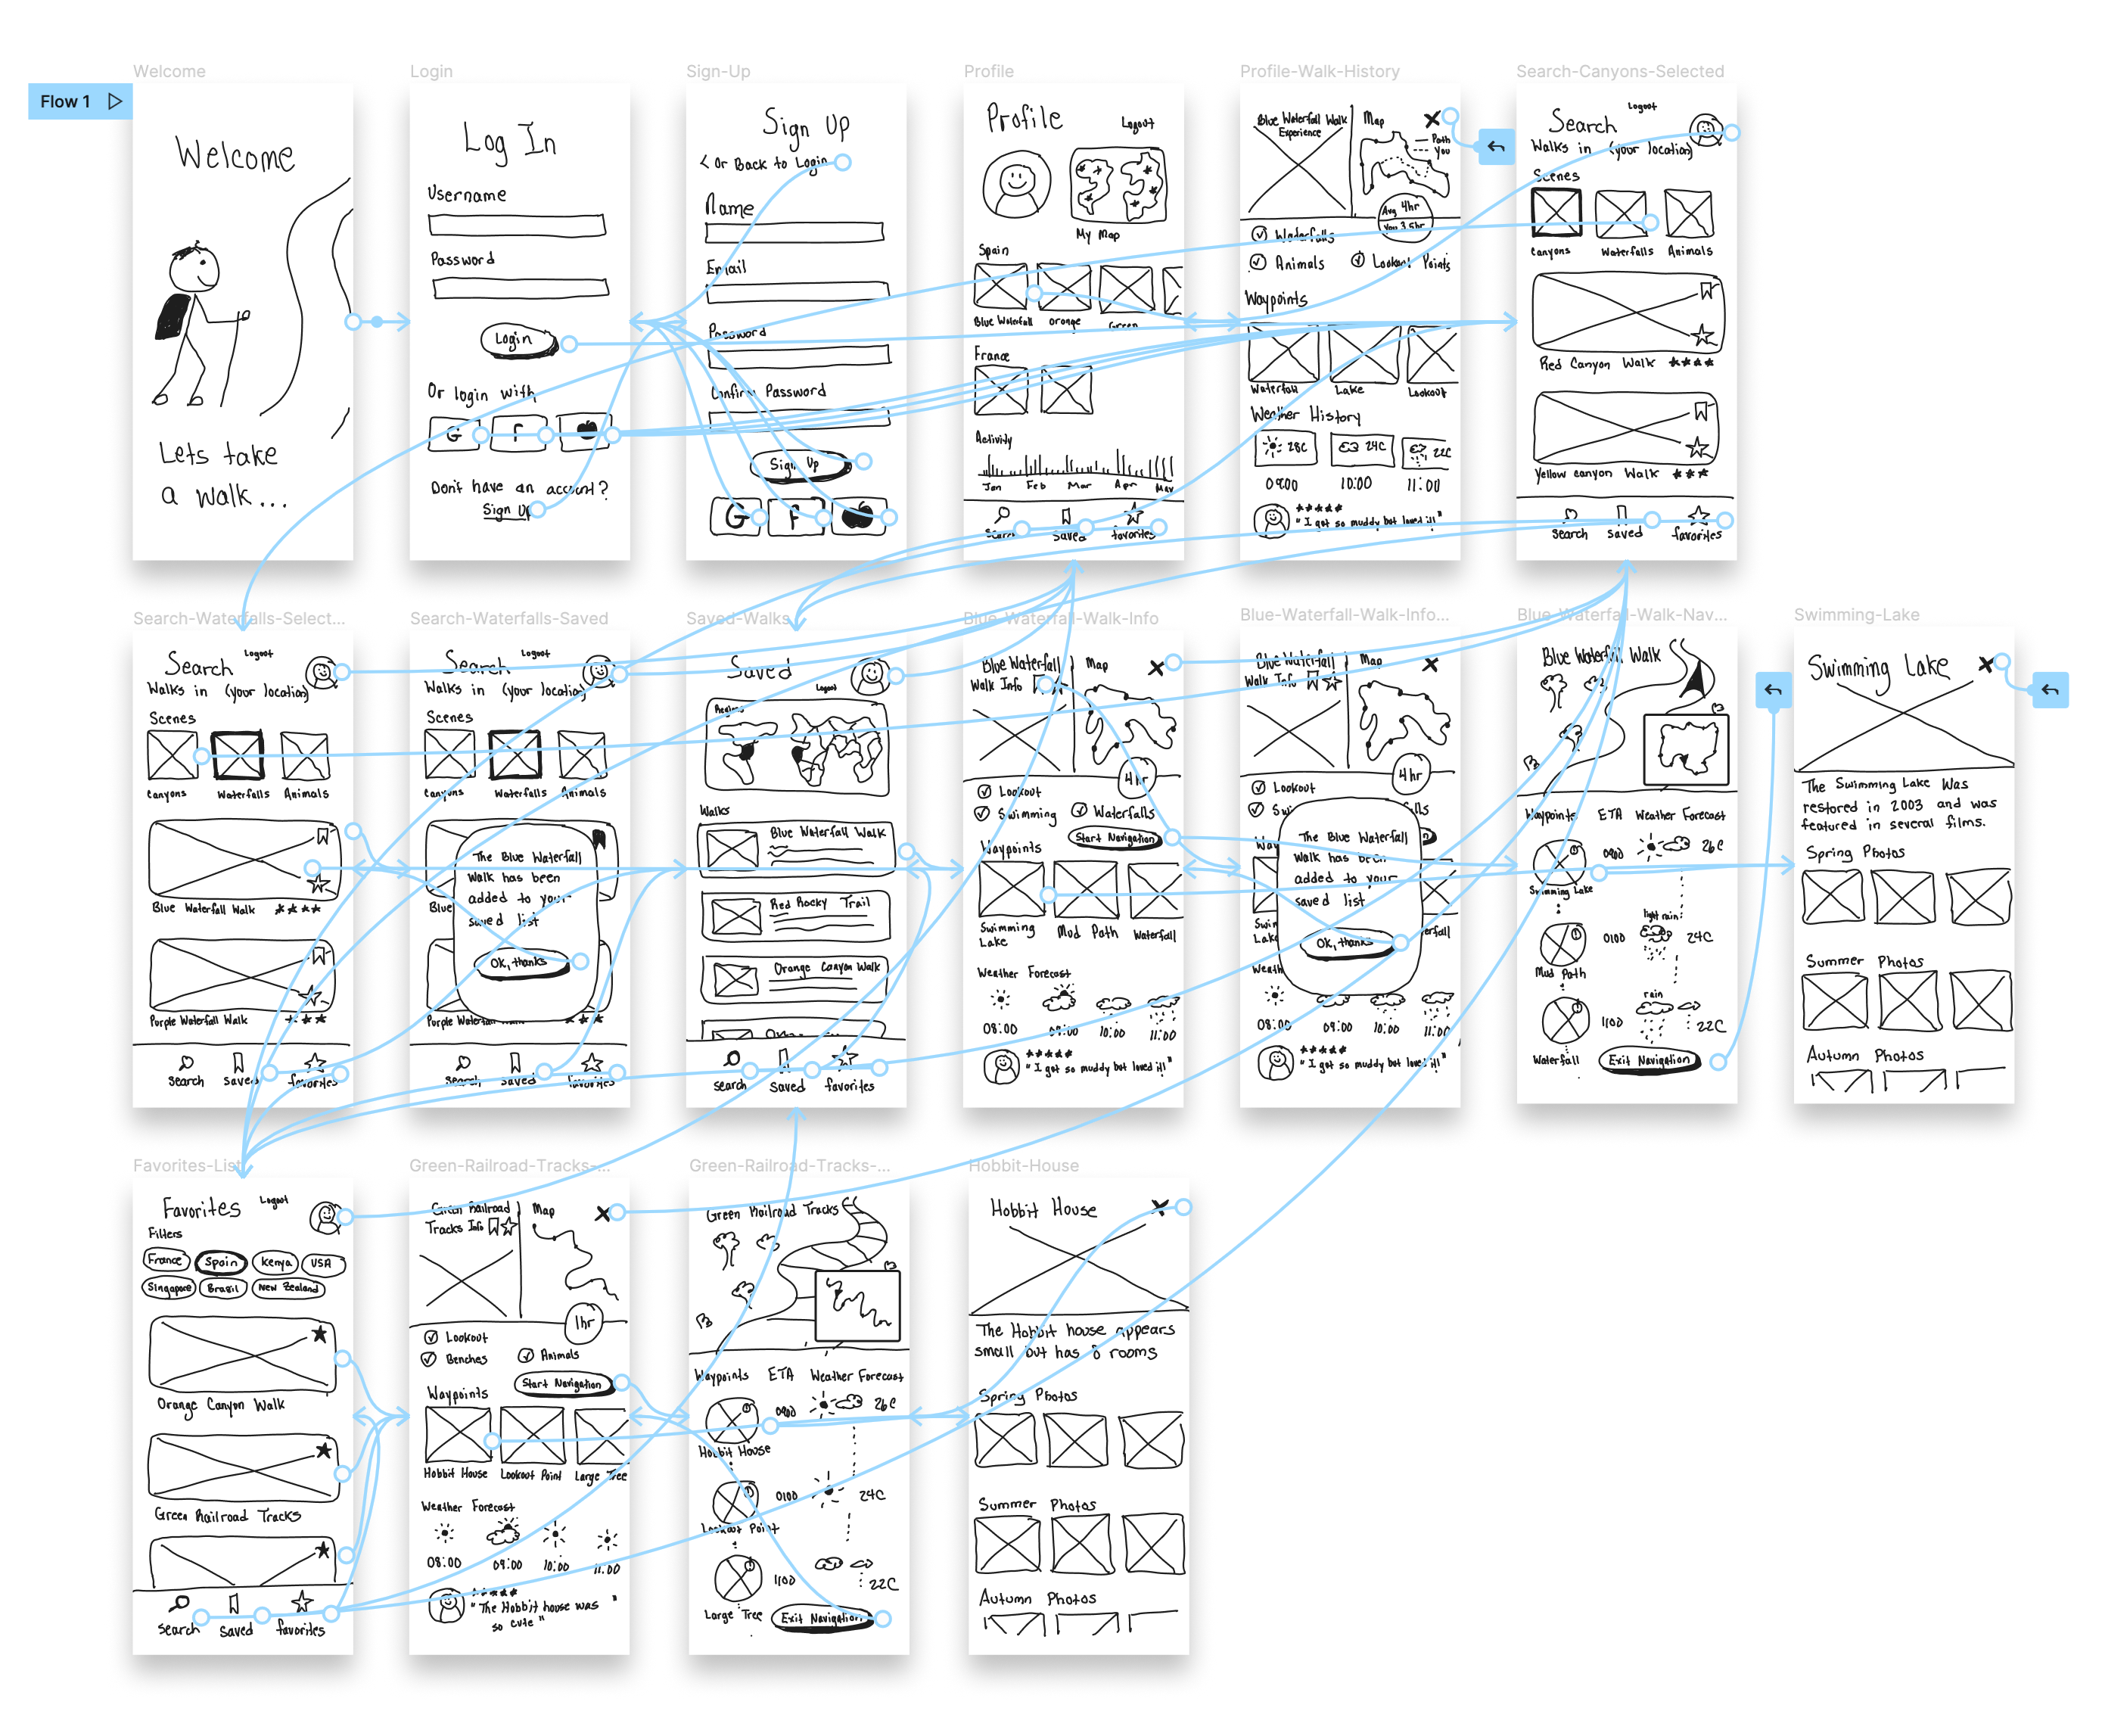 Flow 1
Welcome
Welcome
Lets take
a walk...
Login
Log In
Username
Password
Login
Or login with
G
f
Don't have an account?
Sign Up
Sign-Up
Sign Up
< Or Back to Login
Name
Email
Password
Confirm Password
Sign Up
G
f
Profile
Profile
Logout
My Map
Spain
Blue Waterfall Orange Green
France
Activity
Jan Feb Mar Apr May
search saved favorites
Profile-Walk-History
Blue Waterfall Walk
Experience
Map
Path
You
Avg 4hr
You 3.5hr
Waterfalls
Animals Lookout Points
Waypoints
Waterfall Lake Lookout
Weather History
28C 24C 22C
09:00 10:00 11:00
"I got so muddy but loved it!"
Search-Canyons-Selected
Logout
Search
Walks in (your location)
Scenes
Canyons Waterfalls Animals
Red Canyon Walk ★★★★
Yellow canyon Walk ★★★
search saved favorites
Search-Waterfalls-Select...
Logout
Search
Walks in (your location)
Scenes
Canyons Waterfalls Animals
Blue Waterfall Walk ★★★★
Purple Waterfall Walk ★★★
search saved favorites
Search-Waterfalls-Saved
Logout
Search
Walks in (your location)
Scenes
Canyons Waterfalls Animals
The Blue Waterfall
Walk has been
added to your
saved list
Ok, thanks
Blue
Purple Waterfall Walk ★★★
search saved favorites
Saved-Walks
Saved
Logout
Regions
Walks
Blue Waterfall Walk
Red Rocky Trail
Orange Canyon Walk
search saved favorites
Blue-Waterfall-Walk-Info
Blue Waterfall
Walk Info
Map
4hr
Lookout
Swimming Waterfalls
Start Navigation
Waypoints
Swimming Lake Mud Path Waterfall
Weather Forecast
08:00 09:00 10:00 11:00
★★★★★
"I got so muddy but loved it!"
Blue-Waterfall-Walk-Info...
Blue Waterfall
Walk Info
Map
4hr
Lookout
The Blue Waterfall
Walk has been
added to your
saved list
Ok, thanks
08:00 09:00 10:00 11:00
★★★★★
"I got so muddy but loved it!"
Blue-Waterfall-Walk-Nav...
Blue Waterfall Walk
Waypoints ETA Weather Forecast
0900 26C
Swimming Lake
light rain
0100 24C
Mud Path
rain
1100 22C
Waterfall
Exit Navigation
Swimming-Lake
Swimming Lake
The Swimming Lake Was
restored in 2003 and was
featured in several films.
Spring Photos
Summer Photos
Autumn Photos
Favorites-List
Favorites
Logout
Filters
France Spain Kenya USA
Singapore Brasil New Zealand
Orange Canyon Walk
Green Railroad Tracks
search saved favorites
Green-Railroad-Tracks-...
Green Railroad
Tracks Info
Map
1hr
Lookout
Benches Animals
Start Navigation
Waypoints
Hobbit House Lookout Point Large Tree
Weather Forecast
08:00 09:00 10:00 11:00
★★★★★
"The Hobbit house was
so cute"
Green-Railroad-Tracks-...
Green Railroad Tracks
Waypoints ETA Weather Forecast
0900 26C
Hobbit House
0100 24C
Lookout Point
1100 22C
Large Tree
Exit Navigation
Hobbit-House
Hobbit House
The Hobbit house appears
small but has 8 rooms
Spring Photos
Summer Photos
Autumn Photos